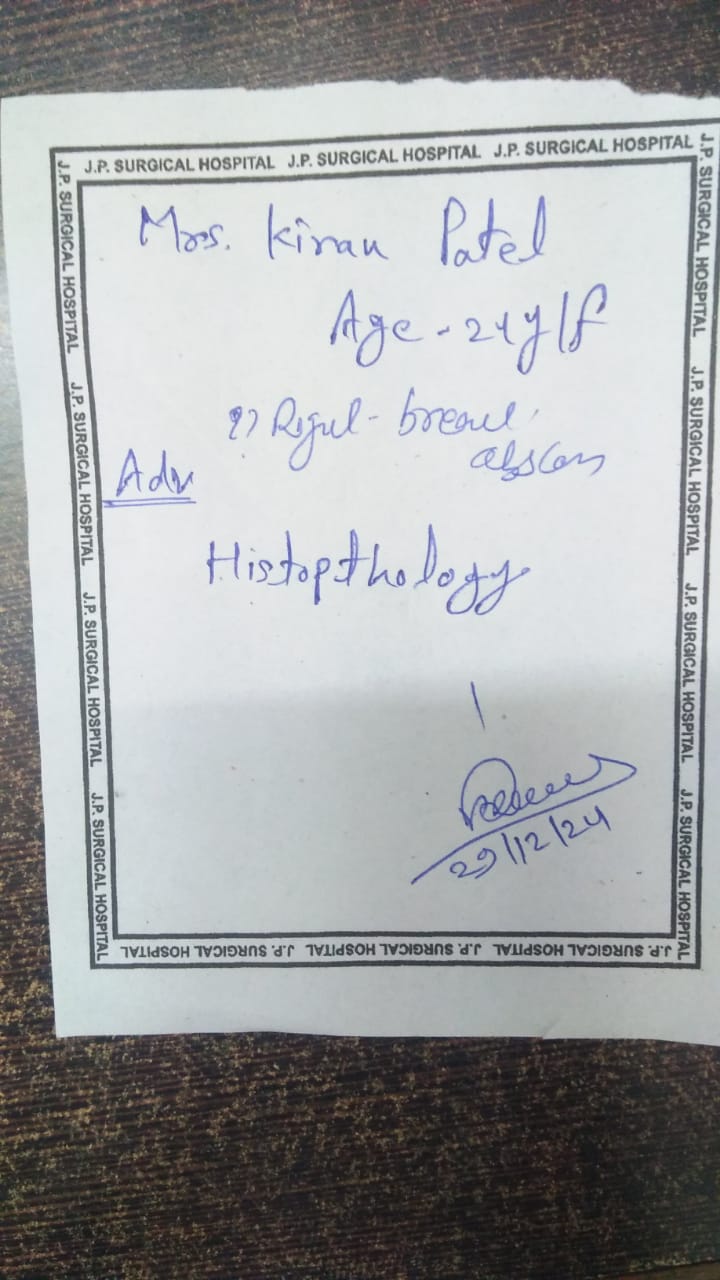 J.P. SURGICAL HOSPITAL J.P. SURGICAL HOSPITAL J.P. SURGICAL HOSPITAL
Mrs. Kiran Patel
Age - 24y/f
?? Right breast
abscess
Adv
Histopthology
29/12/24
J.P. SURGICAL HOSPITAL J.P. SURGICAL HOSPITAL J.P. SURGICAL HOSPITAL J.P. SURGICAL HOSPITAL
J.P. SURGICAL HOSPITAL J.P. SURGICAL HOSPITAL J.P. SURGICAL HOSPITAL J.P. SURGICAL HOSPITAL
J.P. SURGICAL HOSPITAL J.P. SURGICAL HOSPITAL J.P. SURGICAL HOSPITAL